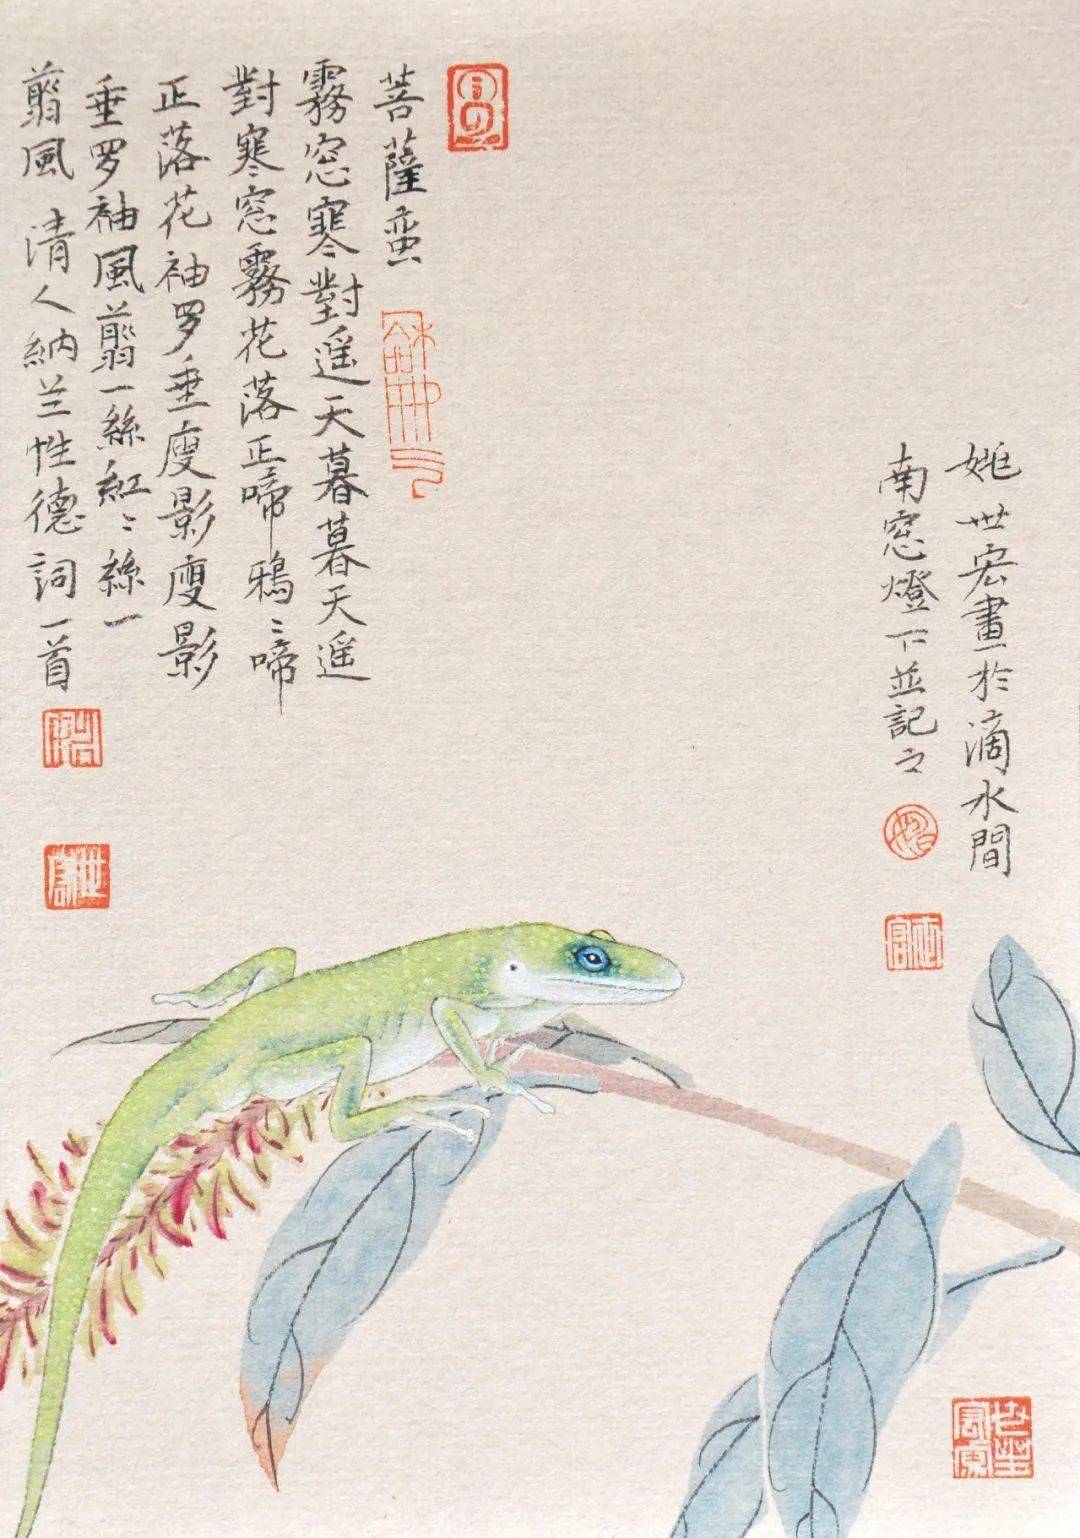 姚世宏畫於滴水間
南窓燈下並記之
菩薩蛮
霧窓寒對遥天暮暮天遥
對寒窓霧花落正啼鴉〻啼
正落花袖罗垂廋影廋影
垂罗袖風翦一絲紅〻絲一
翦風 清人納兰性德詞一首
世宏